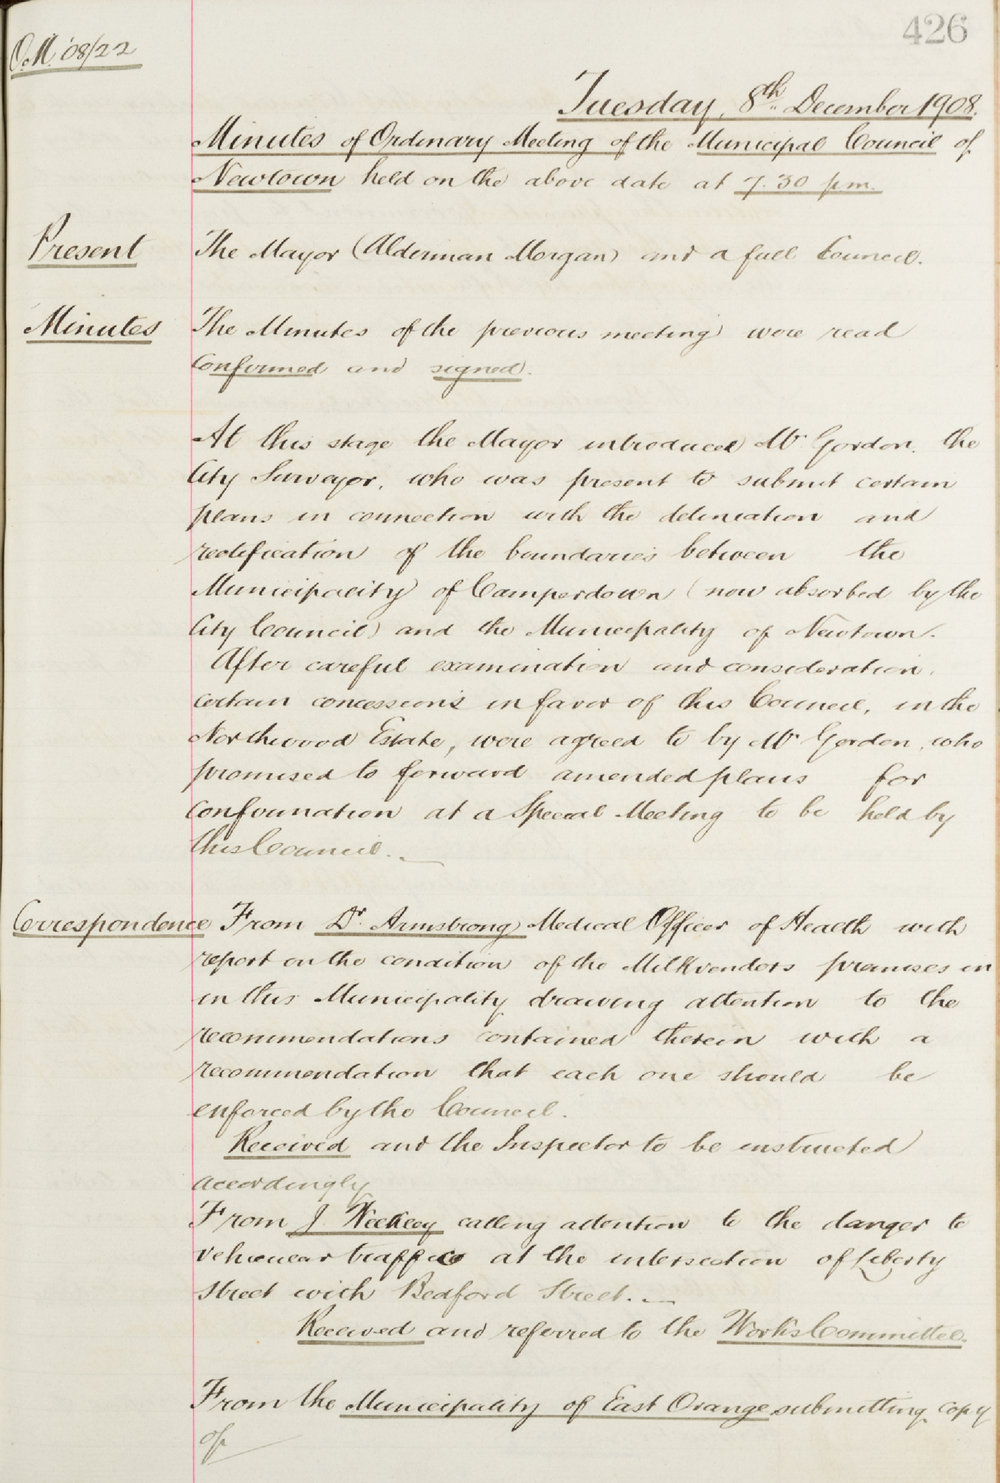 426
O.M. '08/22
Tuesday, 8th December 1908.
Minutes of Ordinary Meeting of the Municipal Council of
Newtown held on the above date at 7.30 p.m.
Present The Mayor (Alderman Morgan) and a full Council.
Minutes The Minutes of the previous meeting were read
Confirmed and signed.
At this stage the Mayor introduced Mr Gordon, the
City Surveyor, who was present to submit certain
plans in connection with the deliniation and
rectification of the boundaries between the
Municipality of Camperdown (now absorbed by the
City Council) and the Municipality of Newtown.
After careful examination and consideration,
certain concessions in favor of this Council, in the
Northwood Estate, were agreed to by Mr Gordon, who
promised to forward amended plans for
confirmation at a Special Meeting to be held by
this Council.
Correspondence From Dr. Armstrong Medical Officer of Health with
report on the condition of the Milkvendors premises in
in this Municipality drawing attention to the
recommendations contained therein with a
recommendation that each one should be
enforced by the Council.
Received and the Inspector to be instructed
accordingly
From J. calling attention to the danger to
vehicular traffic at the intersection of Liberty
Street with Bedford Street.
Received and referred to the Works Committee.
From the Municipality of East Orange submitting copy
of